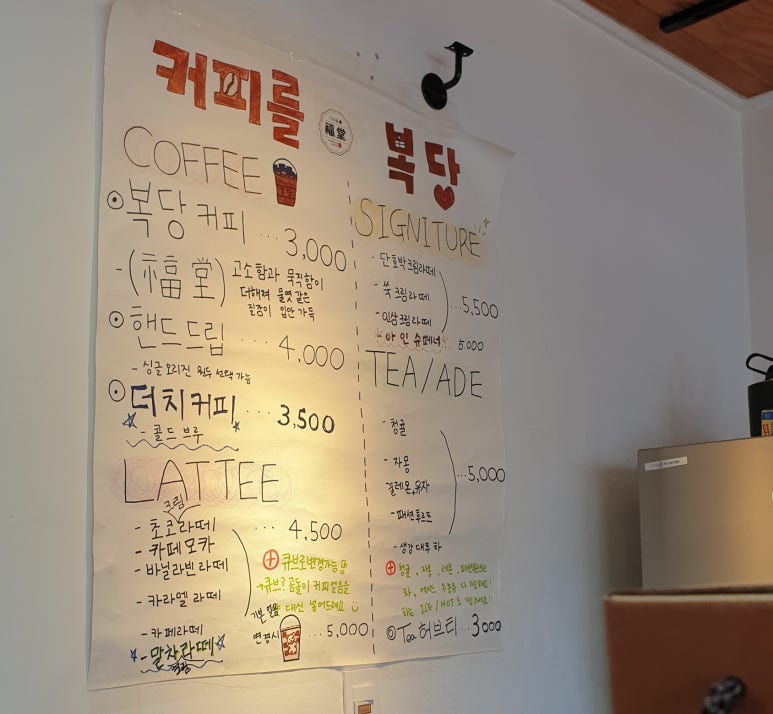 커피를
福堂
복당
COFFEE
복당 커피 ... 3,000
- (福堂) 고소함과 묵직함이
더해져 물엿같은
질감이 입안 가득
핸드드립 ... 4,000
- 싱글 오리진 원두 선택 가능
더치커피 ... 3,500
- 콜드브루
LATTEE
크림
- 초코라떼 ... 4,500
- 카페모카
- 바닐라빈라떼
- 카라멜라떼
- 카페라떼
- 말차라떼
⊕ 큐브로변경가능
→큐브? 곰돌이 커피얼음을
기본얼음 대신 넣어드려요
변경시 ... 5,000
SIGNITURE
- 단호박크림라떼
- 쑥크림라떼
- 인삼크림라떼
...5,500
- 아인슈페너 ... 5.000
TEA/ADE
- 청귤
- 자몽
레몬,유자
- 패션후르츠
...5,000
- 생강대추차
⊕ 청귤, 자몽, 레몬, 패션후르츠
차는 ICE/HOT
Tea 허브티 ... 3000